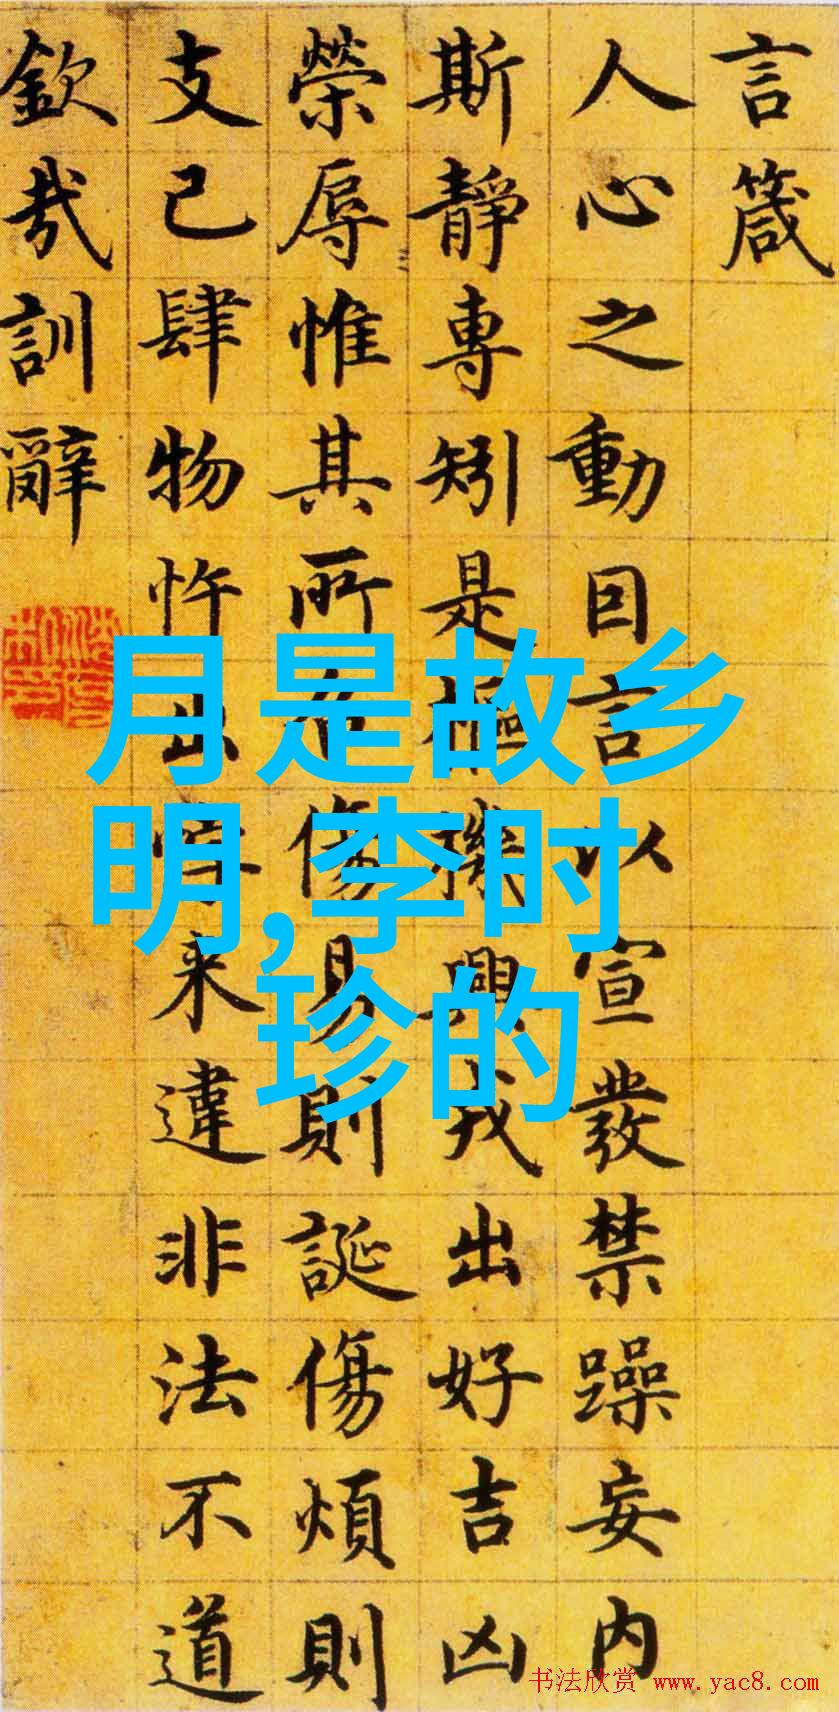 言箴
人心之動囙言以宣發禁躁妄内
斯靜專矧是樞機興戎出好吉凶
榮辱惟其所召傷易則誕傷煩則
支己肆物忤出悖来違非法不道
欽哉訓辭
月是故乡
明,李时
珍的
书法欣赏 www.yac8.com